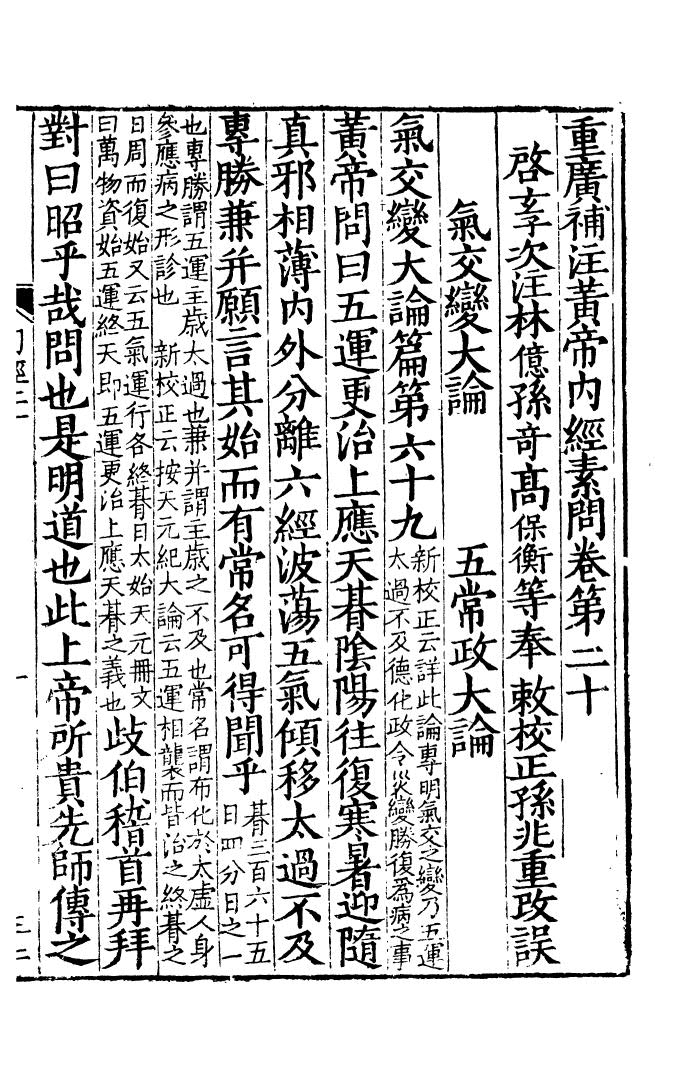 重廣補注黃帝內經素問卷第二十
啓玄子次注林億孫竒髙保衡等奉敕校正孫兆重改誤
氣交變大論　五常政大論
氣交變大論篇第六十九
新校正云詳此論專明氣交之變乃五運
太過不及德化政令災變勝復爲病之事
黃帝問曰五運更治上應天朞陰陽往復寒暑迎隨
真邪相薄內外分離六經波蕩五氣傾移太過不及
專勝兼并願言其始而有常名可得聞乎
朞三百六十五
日四分日之一
也專勝謂五運主歲太過也兼并謂主歲之不及也常名謂布化於太虛人身
參應病之形診也　新校正云按天元紀大論云五運相襲而皆治之終朞之
日周而復始又云五氣運行各終朞日太始天元冊文
曰萬物資始五運終天即五運更治上應天朞之義也
歧伯稽首再拜
對曰昭乎哉問也是明道也此上帝所貴先師傳之